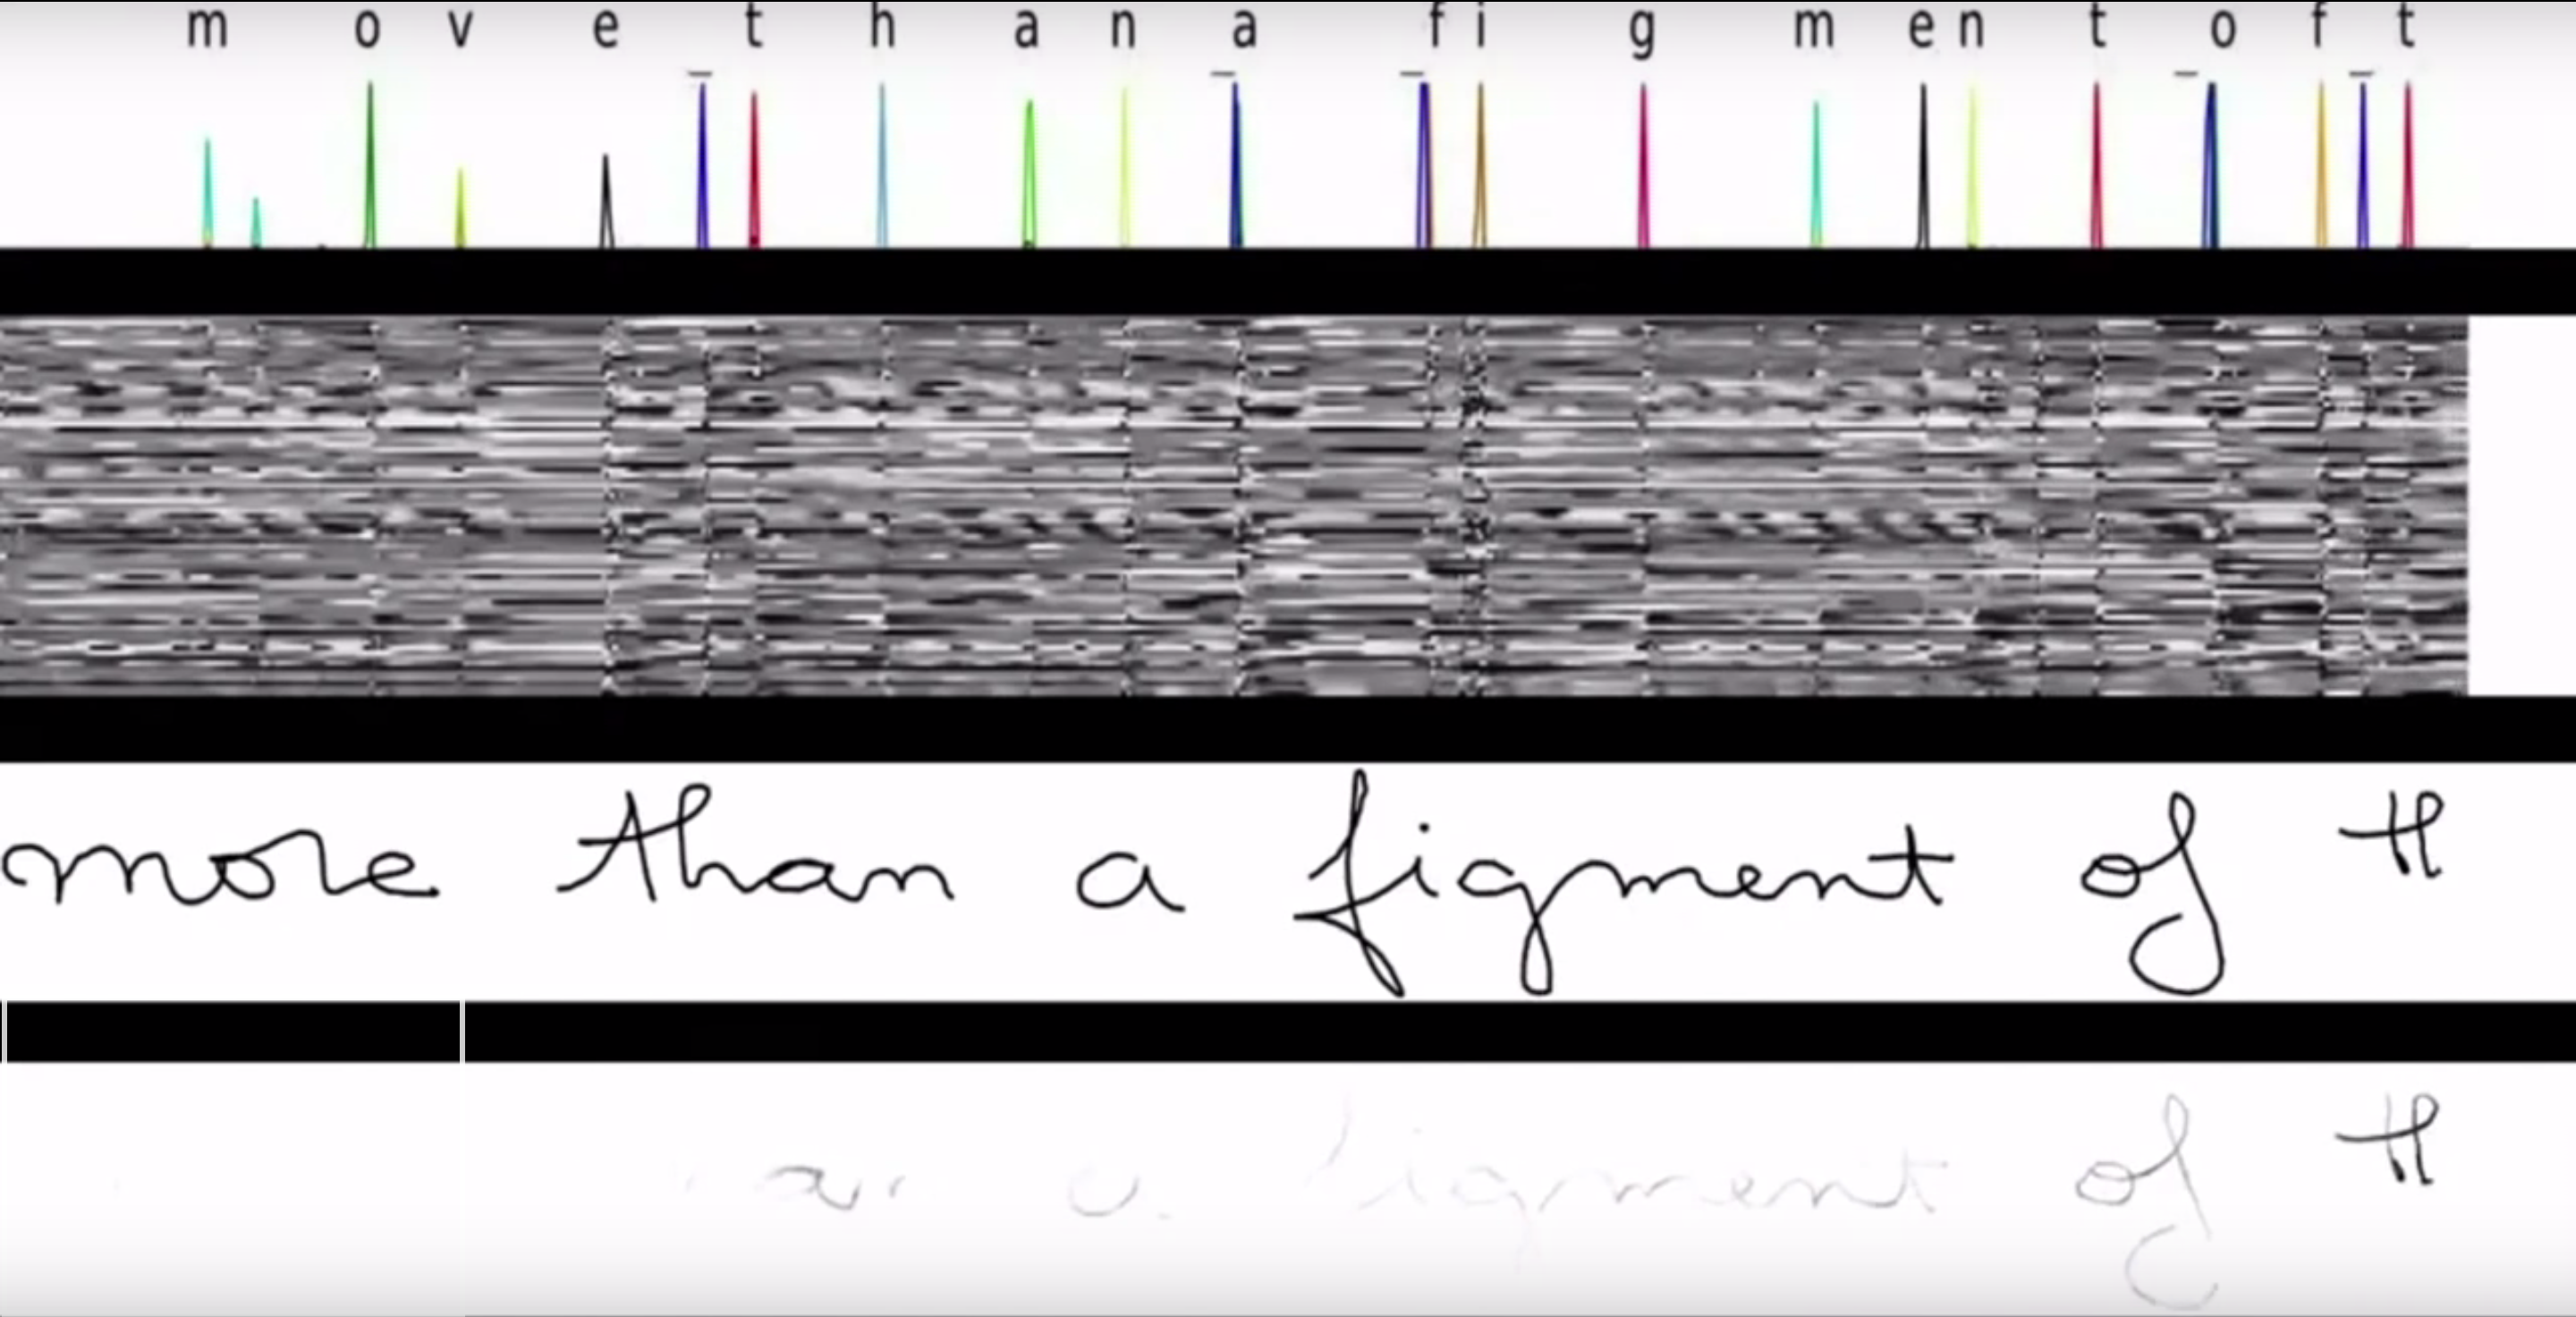 m o v e _ t h a n _ a _ f i g m e n t _ o f _ t
more than a figment of th
ar a figment of th